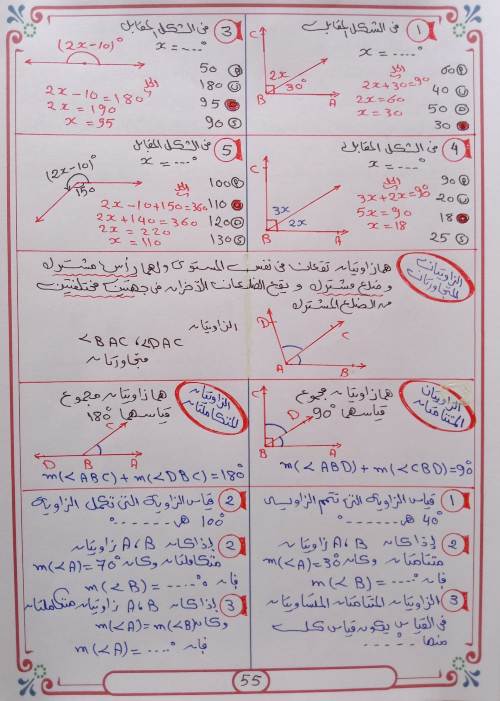 ① فى الشكل المقابل
x = ....°
C
2x
30°
B
A
الحل
2x+30=90
2x=60
x=30
60 أ
40 ب
50 ج
30
③ فى الشكل المقابل
x = ....°
(2x-10)°
الحل
2x-10=180
2x=190
x=95
50 أ
180 ب
95
90 د
④ فى الشكل المقابل
x = ....°
C
3x
2x
B
A
الحل
3x+2x=90°
5x=90
x=18
90 أ
20 ب
18
25 د
⑤ فى الشكل المقابل
x = ....°
(2x-10)°
150
الحل
2x-10+150=360
2x+140=360
2x=220
x=110
100 أ
110
120 ج
130 د
الزاويتان المتجاورتان
هما زاويتان تقعان فى نفس المستوى ولهما رأس مشترك
وضلع مشترك ويقع الضلعان الآخران فى جهتين مختلفتين
من الضلع المشترك
D
C
A
B
الزاويتان
<BAC ، <DAC
متجاورتان
الزاويتان المتتامتان
هما زاويتان مجموع
قياسهما 90°
C
D
B
A
m(<ABD)+m(<CBD)=90°
الزاويتان المتكاملتان
هما زاويتان مجموع
قياسهما 180°
C
D
B
A
m(<ABC)+m(<DBC)=180°
① قياس الزاوية التى تتمم الزاوية التى
40° هو ......°
② إذا كان A، B زاويتان
متتامتان وكان m(<A)=30°
فإن m(<B) = .....°
③ الزاويتان المتتامتان المتساويتان
فى القياس يكون قياس كل
منهما .....°
② قياس الزاوية التى تكمل الزاوية
100° هو ......°
② إذا كان A، B زاويتان
متكاملتان وكان m(<A)=70°
فإن m(<B) = .....°
③ إذا كان A، B زاويتان متكاملتان
وكان m(<A)=m(<B)
فإن m(<A) = ....°
55